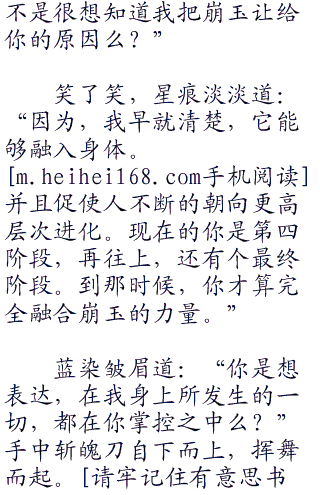 不是很想知道我把崩玉让给
你的原因么？”
笑了笑，星痕淡淡道：
“因为，我早就清楚，它能
够融入身体。
[m.heihei168.com手机阅读]
并且促使人不断的朝向更高
层次进化。现在的你是第四
阶段，再往上，还有个最终
阶段。到那时候，你才算完
全融合崩玉的力量。”
蓝染皱眉道：“你是想
表达，在我身上所发生的一
切，都在你掌控之中么？”
手中斩魄刀自下而上，挥舞
而起。[请牢记住有意思书